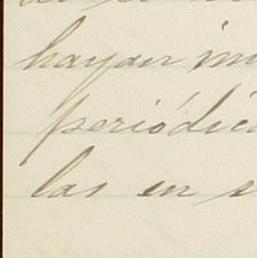 hayan im
periódica
las en s